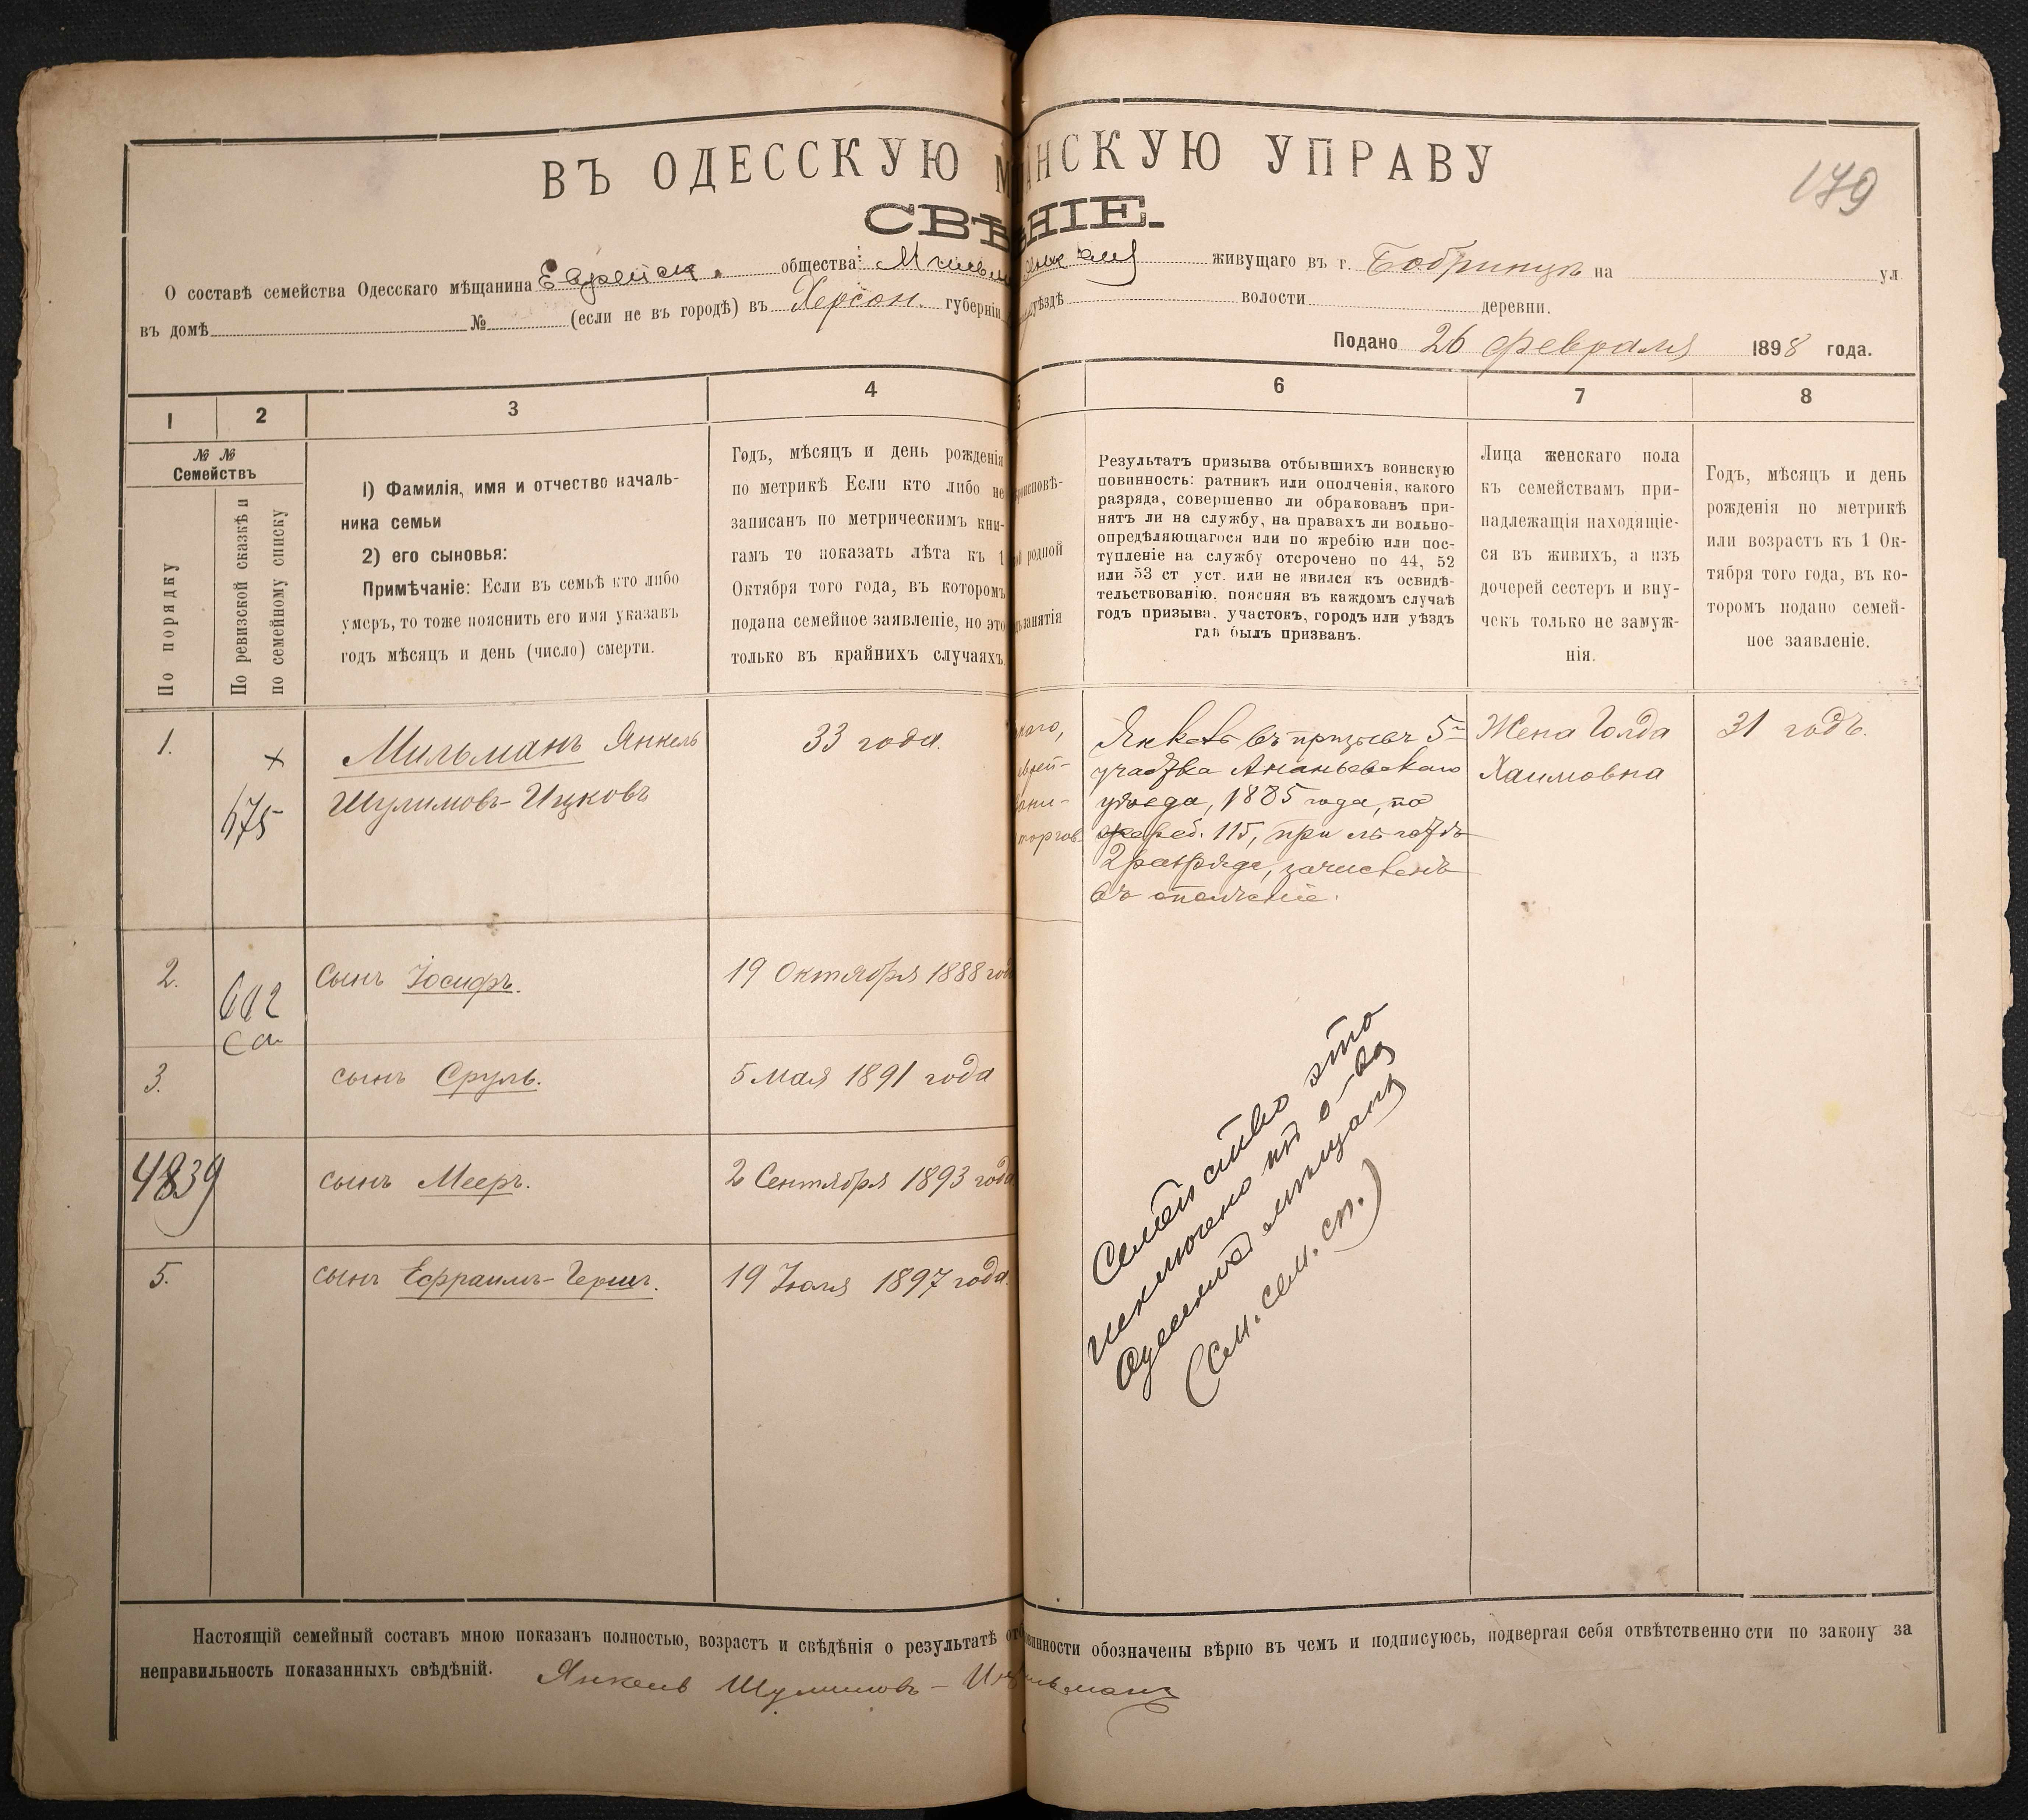 ВЪ ОДЕССКУЮ М АНСКУЮ УПРАВУ
179
СВѢ НІЕ.
О составѣ семейства Одесскаго мѣщанина Еврейск. общества: живущаго въ г. Бобринцѣ на ул
въ домѣ № (если не въ городѣ) въ Херсон. губерніи уѣздѣ волости деревни.
Подано 26 февраля 1898 года.
1 2 3 4 5 6 7 8
№ № Семействъ
По порядку
По ревизской сказкѣ и
по семейному списку
1) Фамилія, имя и отчество началь-
ника семьи
2) его сыновья:
Примѣчаніе: Если въ семьѣ кто либо
умеръ, то тоже пояснить его имя указавъ
годъ мѣсяцъ и день (число) смерти.
Годъ, мѣсяцъ и день рожденія
по метрикѣ Если кто либо не
записанъ по метрическимъ кни-
гамъ то показать лѣта къ 1
Октября того года, въ которомъ
подана семейное заявленіе, но это
только въ крайнихъ случаяхъ.
роисповѣ-
родной
занятія
Результатъ призыва отбывшихъ воинскую
повинность: ратникъ или ополченія, какого
разряда, совершенно ли обракованъ при-
нятъ ли на службу, на правахъ ли вольно-
опредѣляющагося или по жребію или пос-
тупленіе на службу отсрочено по 44, 52
или 53 ст уст. или не явился къ освидѣ-
тельствованію, поясняя въ каждомъ случаѣ
годъ призыва, участокъ, городъ или уѣздъ
гдѣ былъ призванъ.
Лица женскаго пола
къ семействамъ при-
надлежащія находящіе-
ся въ живихъ, а изъ
дочерей сестеръ и вну-
чекъ только не замуж-
нія.
Годъ, мѣсяцъ и день
рожденія по метрикѣ
или возрастъ къ 1 Ок-
тября того года, въ ко-
торомъ подано семей-
ное заявленіе.
1. × Мильманъ Янкель 33 года.
675 Шулимовъ-Ицковъ
наго,
еврей-
торгов
Янкель въ призывъ 5го
участка Ананьевскаго
уѣзда, 1885 года, по
жереб. 115, при льготѣ
2 разряда, зачисленъ
въ ополченіе.
Жена Голда
Хаимовна
31 годъ.
2. 602 сынъ Іосифъ. 19 Октября 1888 года
3. сынъ Сруль. 5 Мая 1891 года
4839 сынъ Мееръ. 2 Сентября 1893 года
5. сынъ Ефраимъ-Гершъ. 19 Іюля 1897 года.
Семейство это
исключено изъ о-ва
Одесскихъ мѣщанъ
(см. сем. сп.)
Настоящій семейный составъ мною показанъ полностью, возрастъ и свѣдѣнія о результатѣ от винности обозначены вѣрно въ чемъ и подписуюсь, подвергая себя отвѣтственности по закону за
неправильность показанныхъ свѣдѣній. Янкель Шулимовъ - Иц льманъ